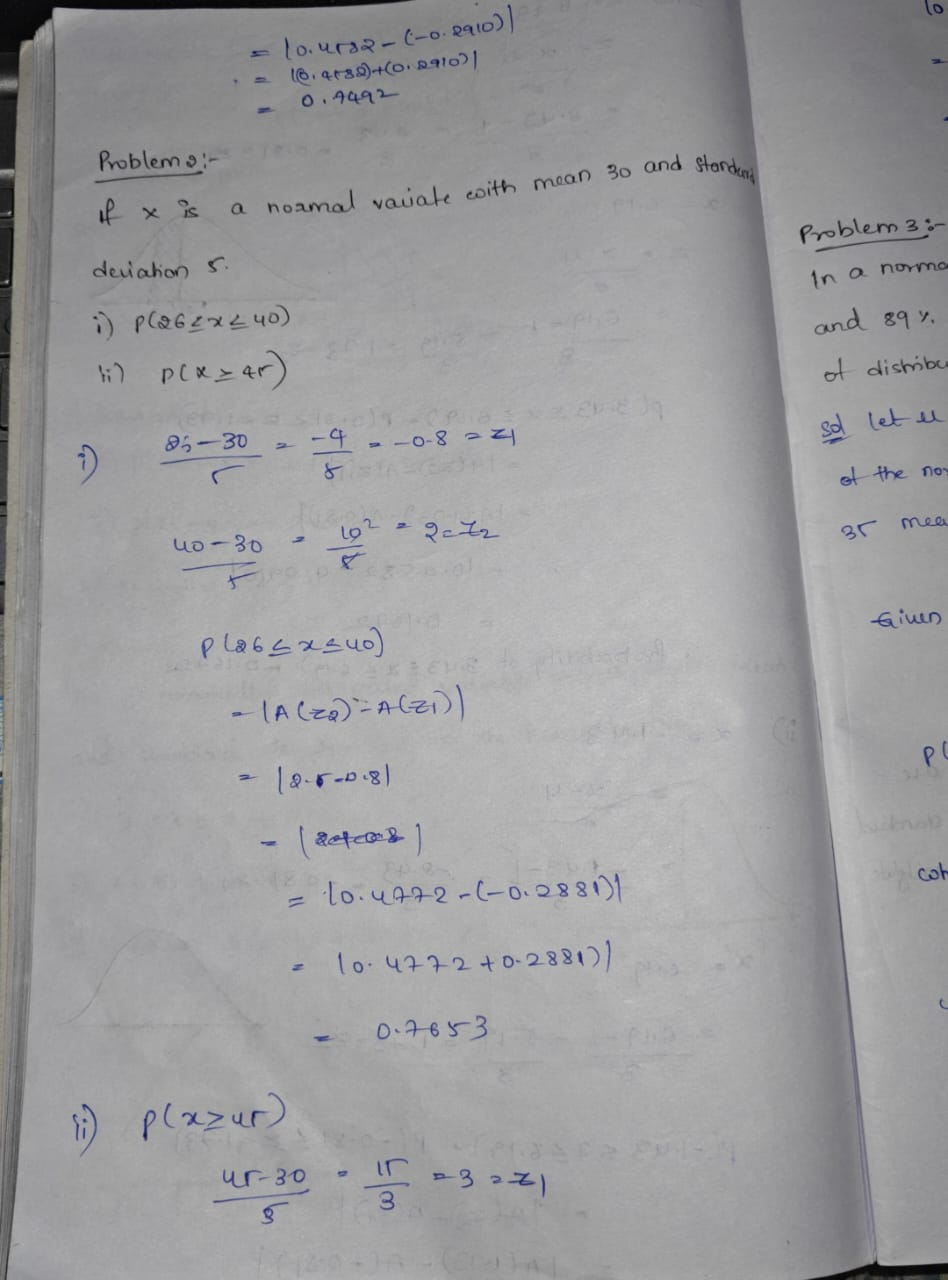 = |0.4582-(-0.2910)|
= |(0.4582)+(0.2910)|
= 0.7492
Problem 2:-
If x is a normal variate with mean 30 and standard
deviation 5.
i) P(26≤x≤40)
ii) P(x≥45)
i) 26-30/5 = -4/5 = -0.8 = z1
40-30/5 = 10/5 2 = 2=z2
P(26≤x≤40)
= |A(z2)-A(z1)|
= |2.5-0.8|
= | |
= |0.4772-(-0.2881)|
= |0.4772+0.2881)|
= 0.7653
ii) P(x≥45)
45-30/5 = 15/3 = 3 = z1
10
=
Problem 3:-
In a norma
and 89%.
of distribu
sol let u
of the nor
35 mea
Given
P(